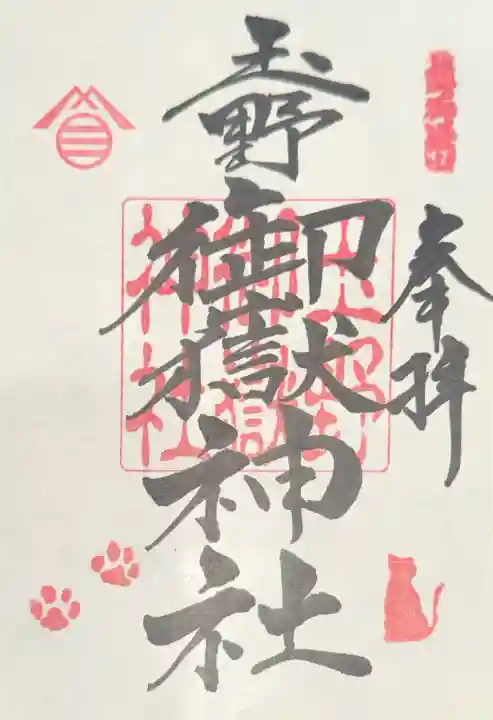 奉拝
玉野
御嶽神社